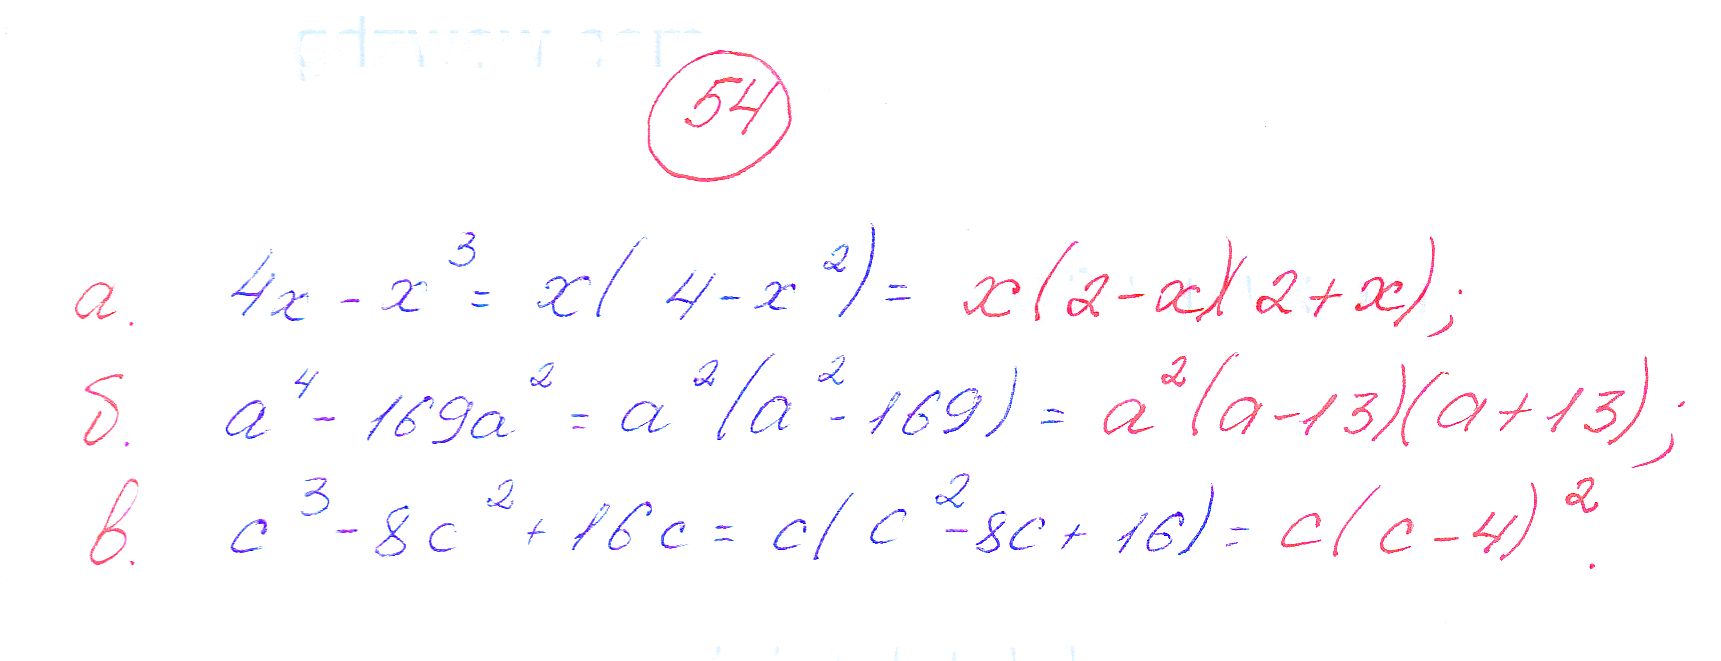 54
а. 4x - x³ = x(4 - x²) = x(2 - x)(2 + x);
б. a⁴ - 169a² = a²(a² - 169) = a²(a - 13)(a + 13);
в. c³ - 8c² + 16c = c(c² - 8c + 16) = c(c - 4)².